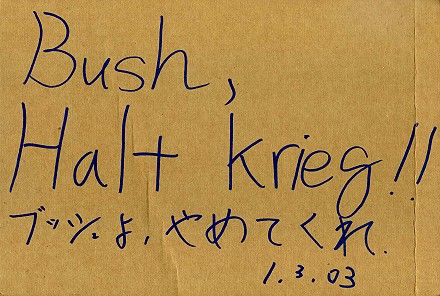 Bush,
Halt krieg!!
ブッシュよ,やめてくれ.
1.3.03